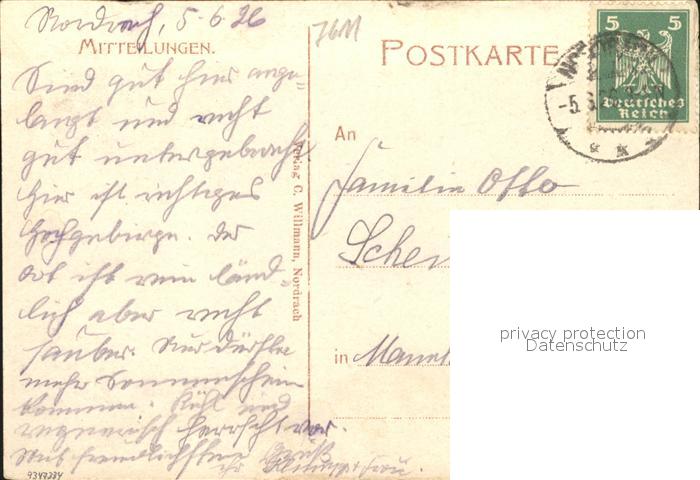 Nordrach, 5.6.26
7611
MITTEILUNGEN.
Sind gut hier ange-
langt und recht
gut untergebracht
hier ist richtiges
Hochgebirge. Der
Ort ist rein länd-
lich aber recht
sauber. Nur dürfte
mehr Sonnenschein
kommen. Kühl und
regnerisch herrscht vor.
Mit freundlichsten Gruß
ihr
Frau.
9347334
Verlag C. Willmann, Nordrach
POSTKARTE
5 5
Deutsches
Reich
An
Familie Otto
Schei
in Mann
privacy protection
Datenschutz